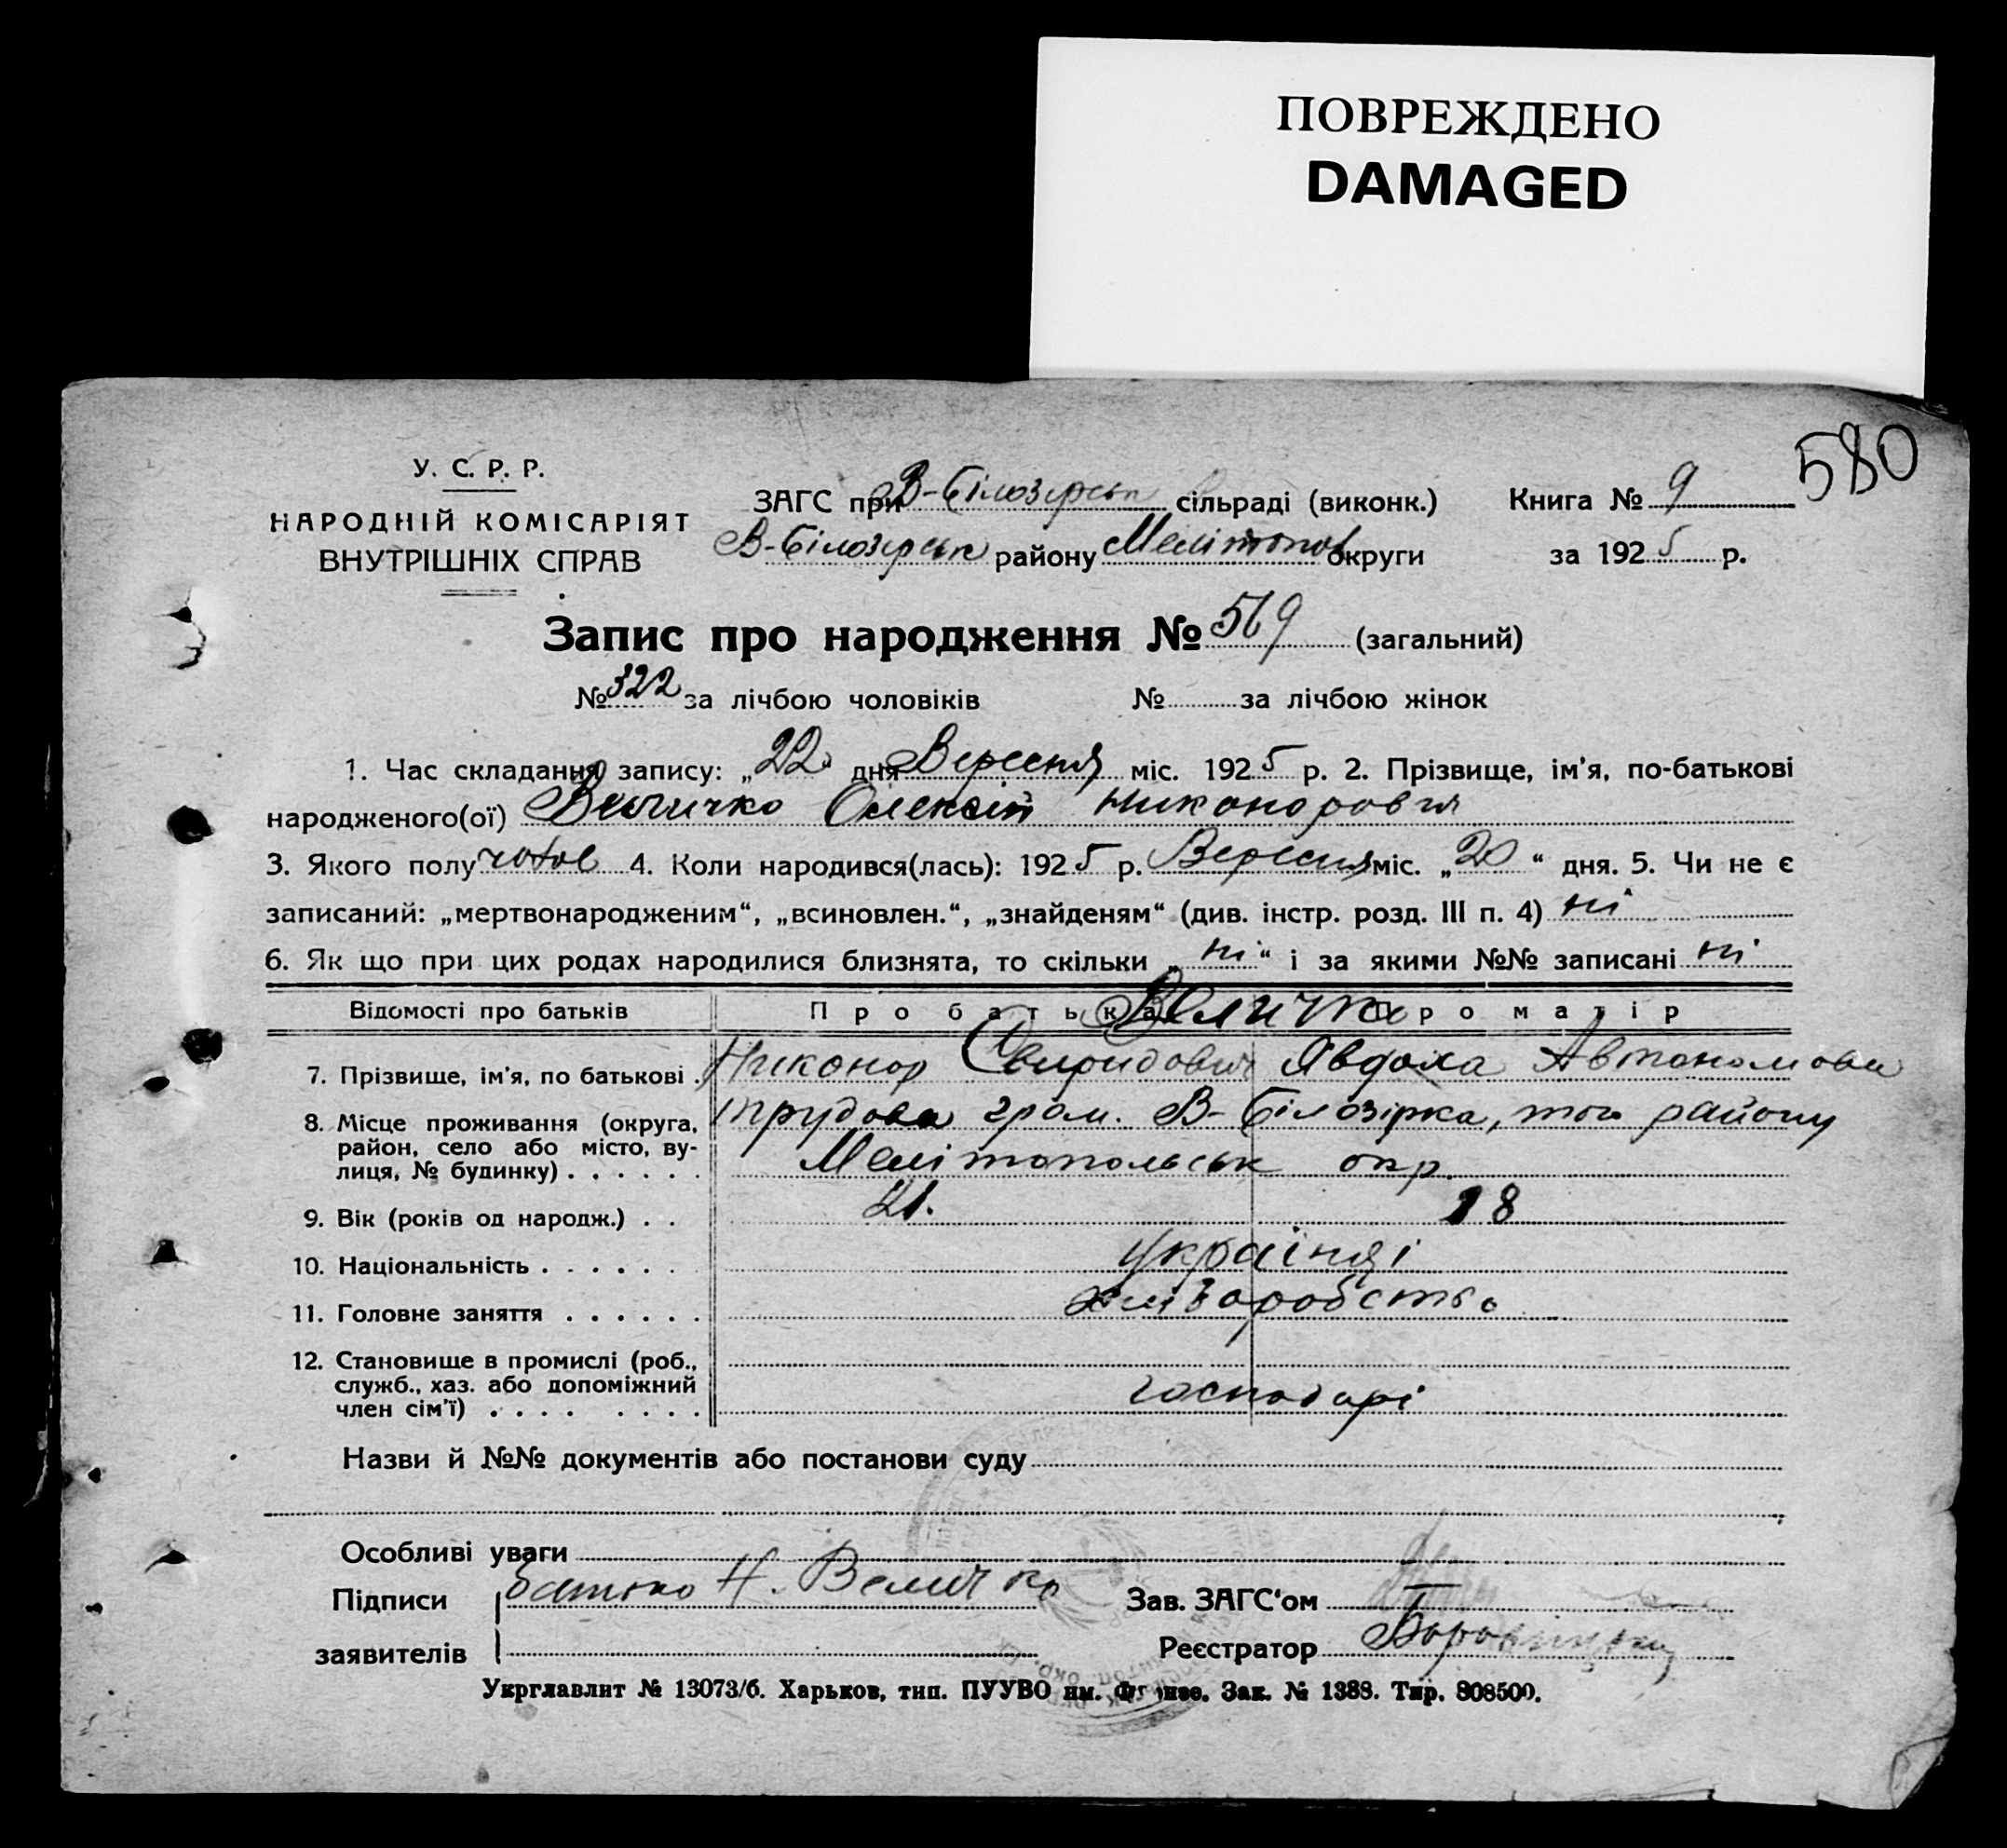 ПОВРЕЖДЕНО
DAMAGED
580
У. С. Р. Р.
НАРОДНІЙ КОМІСАРІЯТ
ВНУТРІШНІХ СПРАВ
ЗАГС при В-Білозерськ сільраді (виконк.)
В-Білозерськ району Мелітопов округи
Книга № 9
за 1925 р.
Запис про народження № 569 (загальний)
№ 322 за лічбою чоловіків № за лічбою жінок
1. Час складання запису: „22“ дня Вересня міс. 1925 р. 2. Прізвище, ім'я, по-батькові
народженого(ої) Величко Олексій Никанорович
3. Якого полу чолов 4. Коли народився(лась): 1925 р. Вересня міс. „20“ дня. 5. Чи не є
записаний: „мертвонародженим“, „всиновлен.“, „знайденям“ (див. інстр. розд. III п. 4) ні
6. Як що при цих родах народилися близнята, то скільки „ні“ і за якими №№ записані ні
Відомості про батьків Про батька Величко Про матір
7. Прізвище, ім'я, по батькові . Никонор Свиридович Явдоха Автономовн
8. Місце проживання (округа, трудова гром. В-Білозірка, того району
район, село або місто, ву- Мелітопольськ окр.
лиця, № будинку) . . . . . .
9. Вік (років од народж.) . . 21. 18
10. Національність . . . . . . українці
11. Головне заняття . . . . . . хліборобство
12. Становище в промислі (роб.,
служб., хаз. або допоміжний господарі
член сім'ї) . . . . . . . .
Назви й №№ документів або постанови суду
Особливі уваги
Підписи батько Н. Величко Зав. ЗАГС'ом
заявителів Реєстратор
Укрглавлит № 13073/б. Харьков, тип. ПУУВО им. Фрунзе. Зак. № 1388. Тир. 808500.